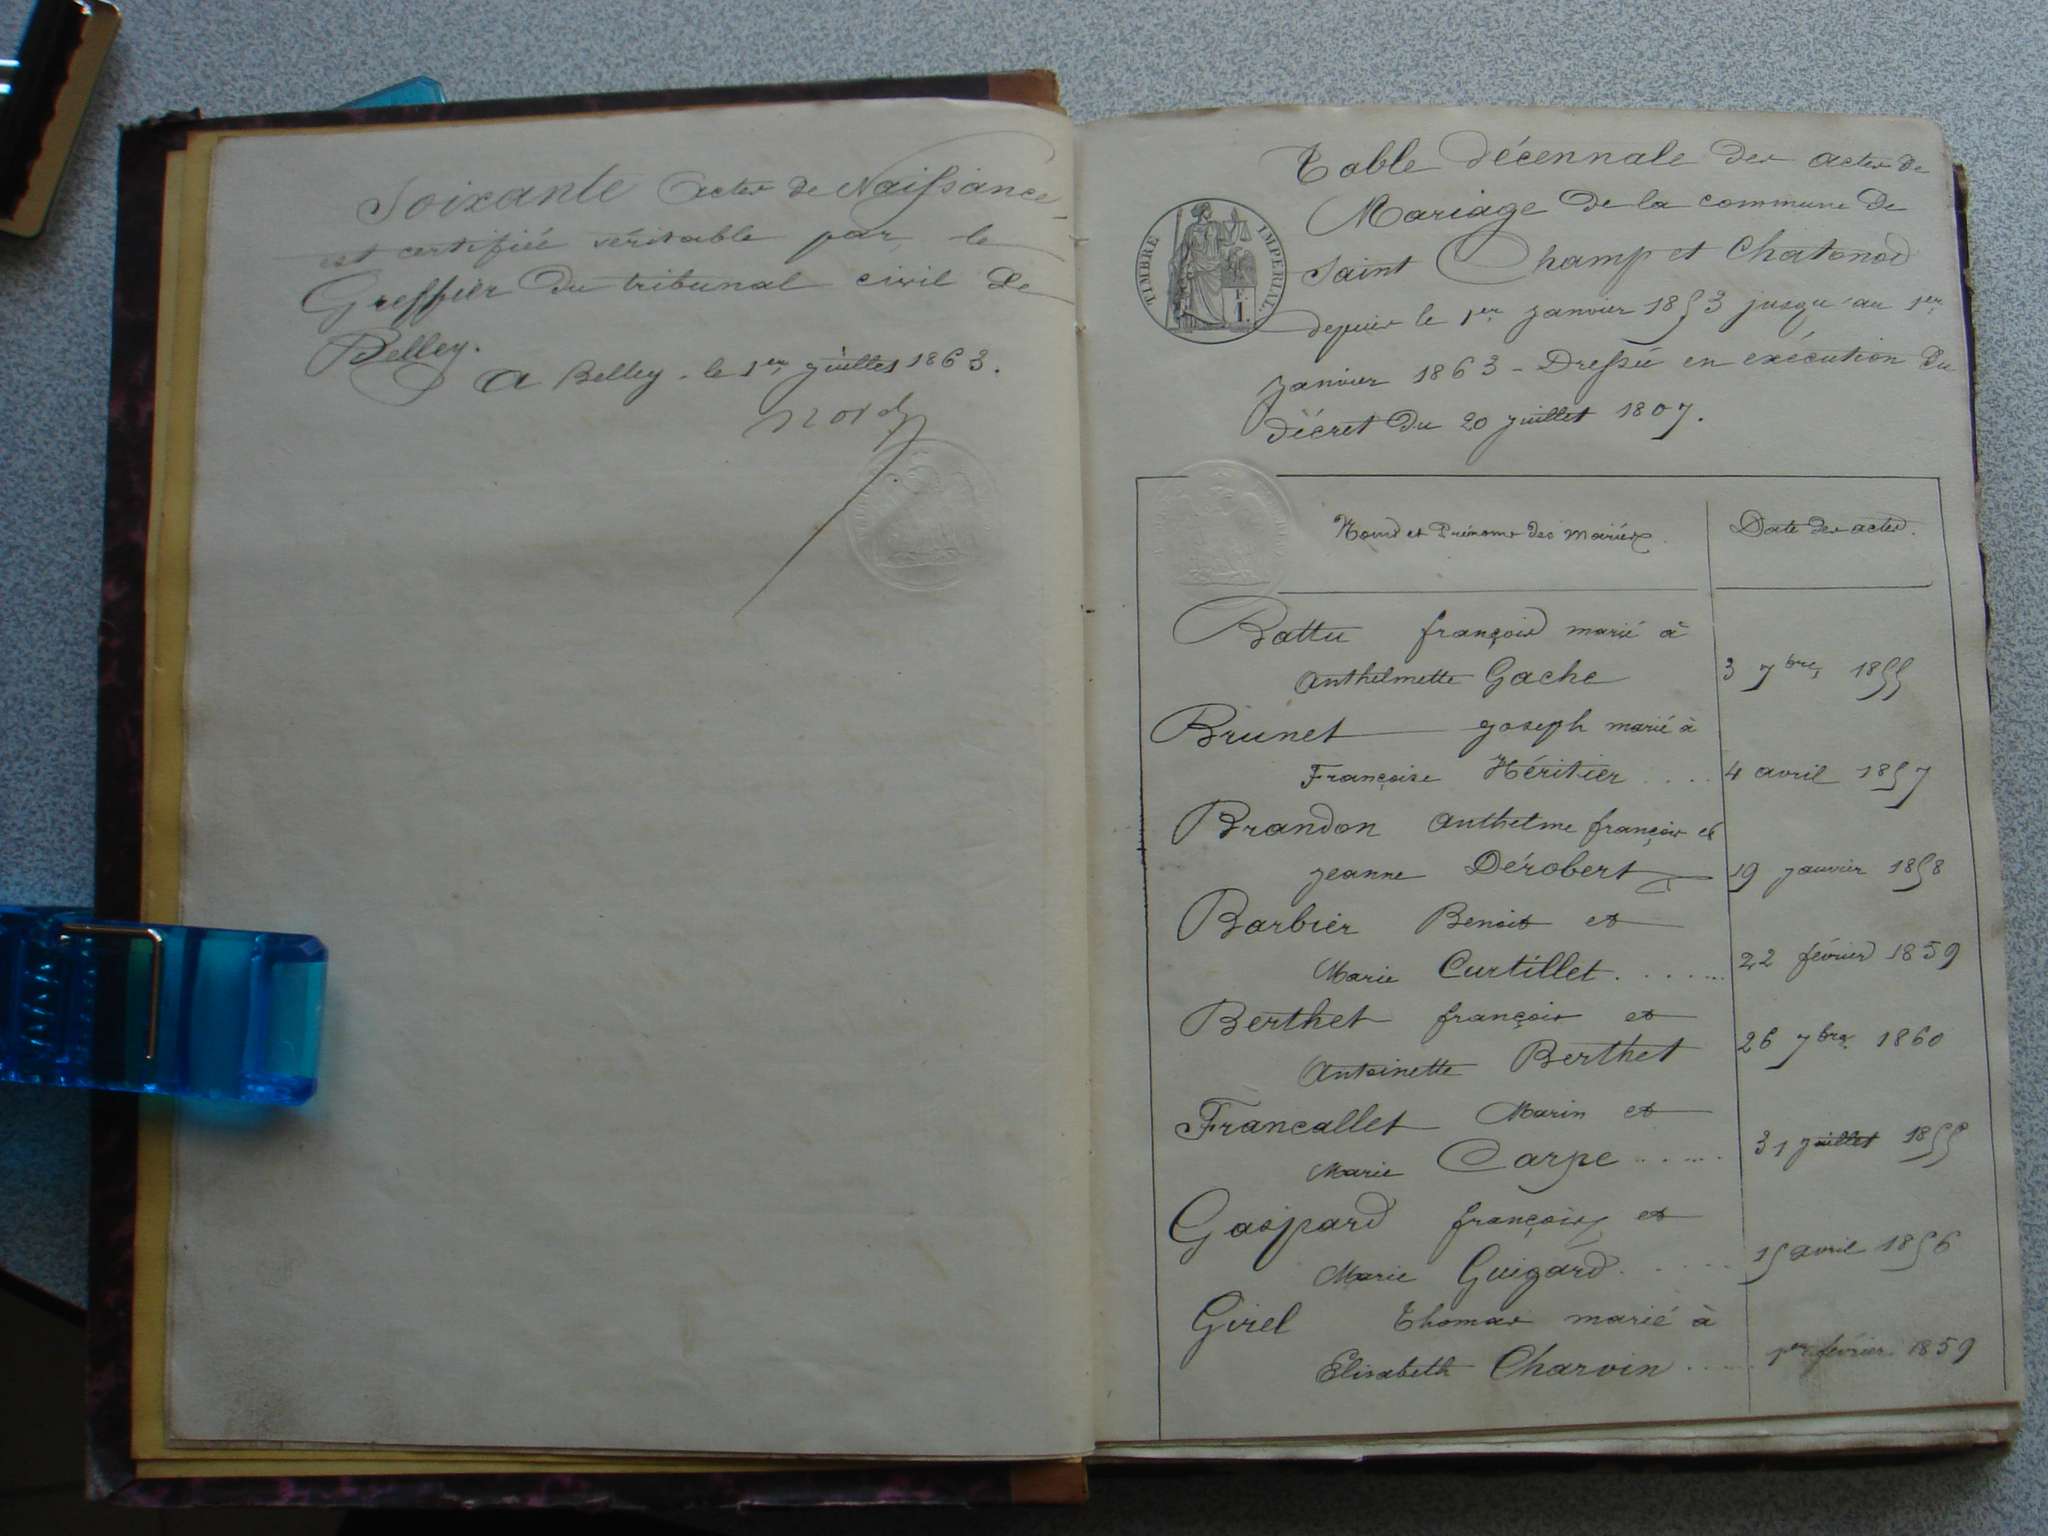 Soixante actes de Naissance
est certifiée véritable par le
Greffier du tribunal civil de
Belley.
A Belley le 1er juillet 1863.
Table décennale des actes de
Mariage de la commune de
Saint Champ et Chatonod
depuis le 1er janvier 1853 jusqu'au 1er
janvier 1863 - Dressée en exécution du
décret du 20 juillet 1807.
TIMBRE IMPERIAL
F.
1.
Noms et Prénoms des mariés
Date des actes.
Battu françois marié à
Anthelmette Gache 3 7bre 1855
Brunet joseph marié à
Françoise Héritier .... 4 avril 1857
Brandon Anthelme françois et
jeanne Dérobert 19 janvier 1858
Barbier Benoit et
Marie Curtillet ...... 22 février 1859
Berthet françois et
Antoinette Berthet 26 7bre 1860
Francallet Marin et
Marie Carpe ...... 31 juillet 1855
Gaspard françois et
Marie Guigard ...... 15 avril 1856
Girel Thomas marié à
Elisabeth Charvin ..... 1er février 1859